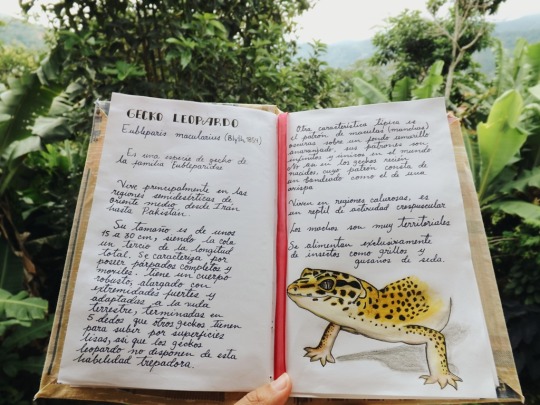 GECKO LEOPARDO
Eublepharis macularius (Blyth, 1854)
Es una especie de gecko de
la familia Eublepharidae
Vive principalmente en las
regiones semidesérticas de
oriente medio desde Irán
hasta Pakistán.
Su tamaño es de unos
15 a 30 cm, siendo la cola
un terco de la longitud
total. Se caracteriza por
poseer párpados completos y
moviles: tiene un cuerpo
robusto, alargado con
extremidades fuertes y
adaptadas a la vida
terrestre, terminadas en
5 dedos que otros geckos tienen
para subir por superficies
lisas, así que los geckos
leopardo no disponen de esta
habilidad trepadora.
Otra característica típica es
el patrón de maculas (manchas)
oscuras sobre un fondo amarillo
anaranjado, sus patrones son
infinitos y únicos en el mundo
No así en los geckos recién
nacidos, cuyo patrón consta de
un bandeado como el de una
avispa
Viven en regiones calurosas, es
un reptil de actividad crepuscular
Los machos son muy territoriales
Se alimentan exclusivamente
de insectos como grillos y
gusanos de seda.